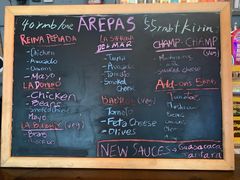 40 rmb/one AREPAS 55rmb + Kirin
REINA PEPIADA
- Chicken
- Avocado
- Onions
- Mayo
LA DOMINO
- Chicken
- Beans
- Smoked cheese
Mayo
(veg)
- Beans
LA SIRENA DEL MAR
- Tuna
- Avocado
- Tomato
- Smoked Cheese
(veg)
- Tomato
- Feta Cheese
- Olives
CHAMP-CHAMP
(veg)
- Mushrooms
- smoked cheese
Add-ons 5rmb
NEW SAUCES
Guasacaca
Tartara